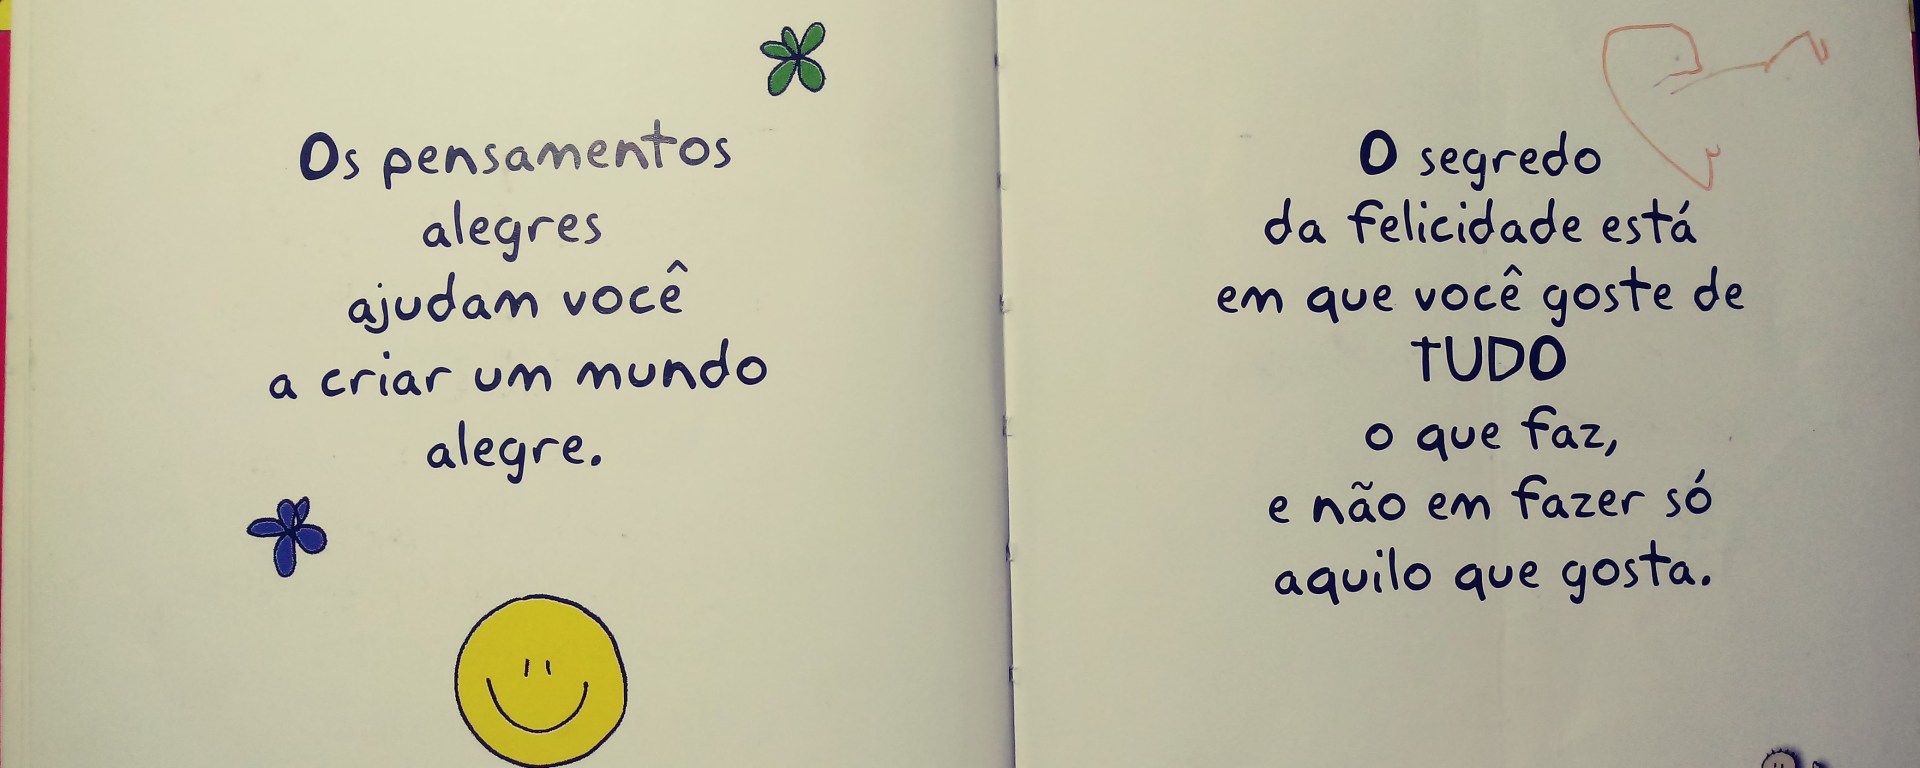 Os pensamentos
alegres
ajudam você
a criar um mundo
alegre.
O segredo
da felicidade está
em que você goste de
TUDO
o que faz,
e não em fazer só
aquilo que gosta.